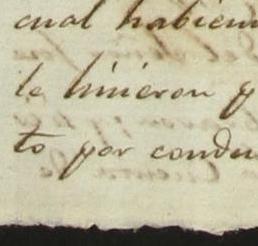 cual habien
le hicieron p
to por condu